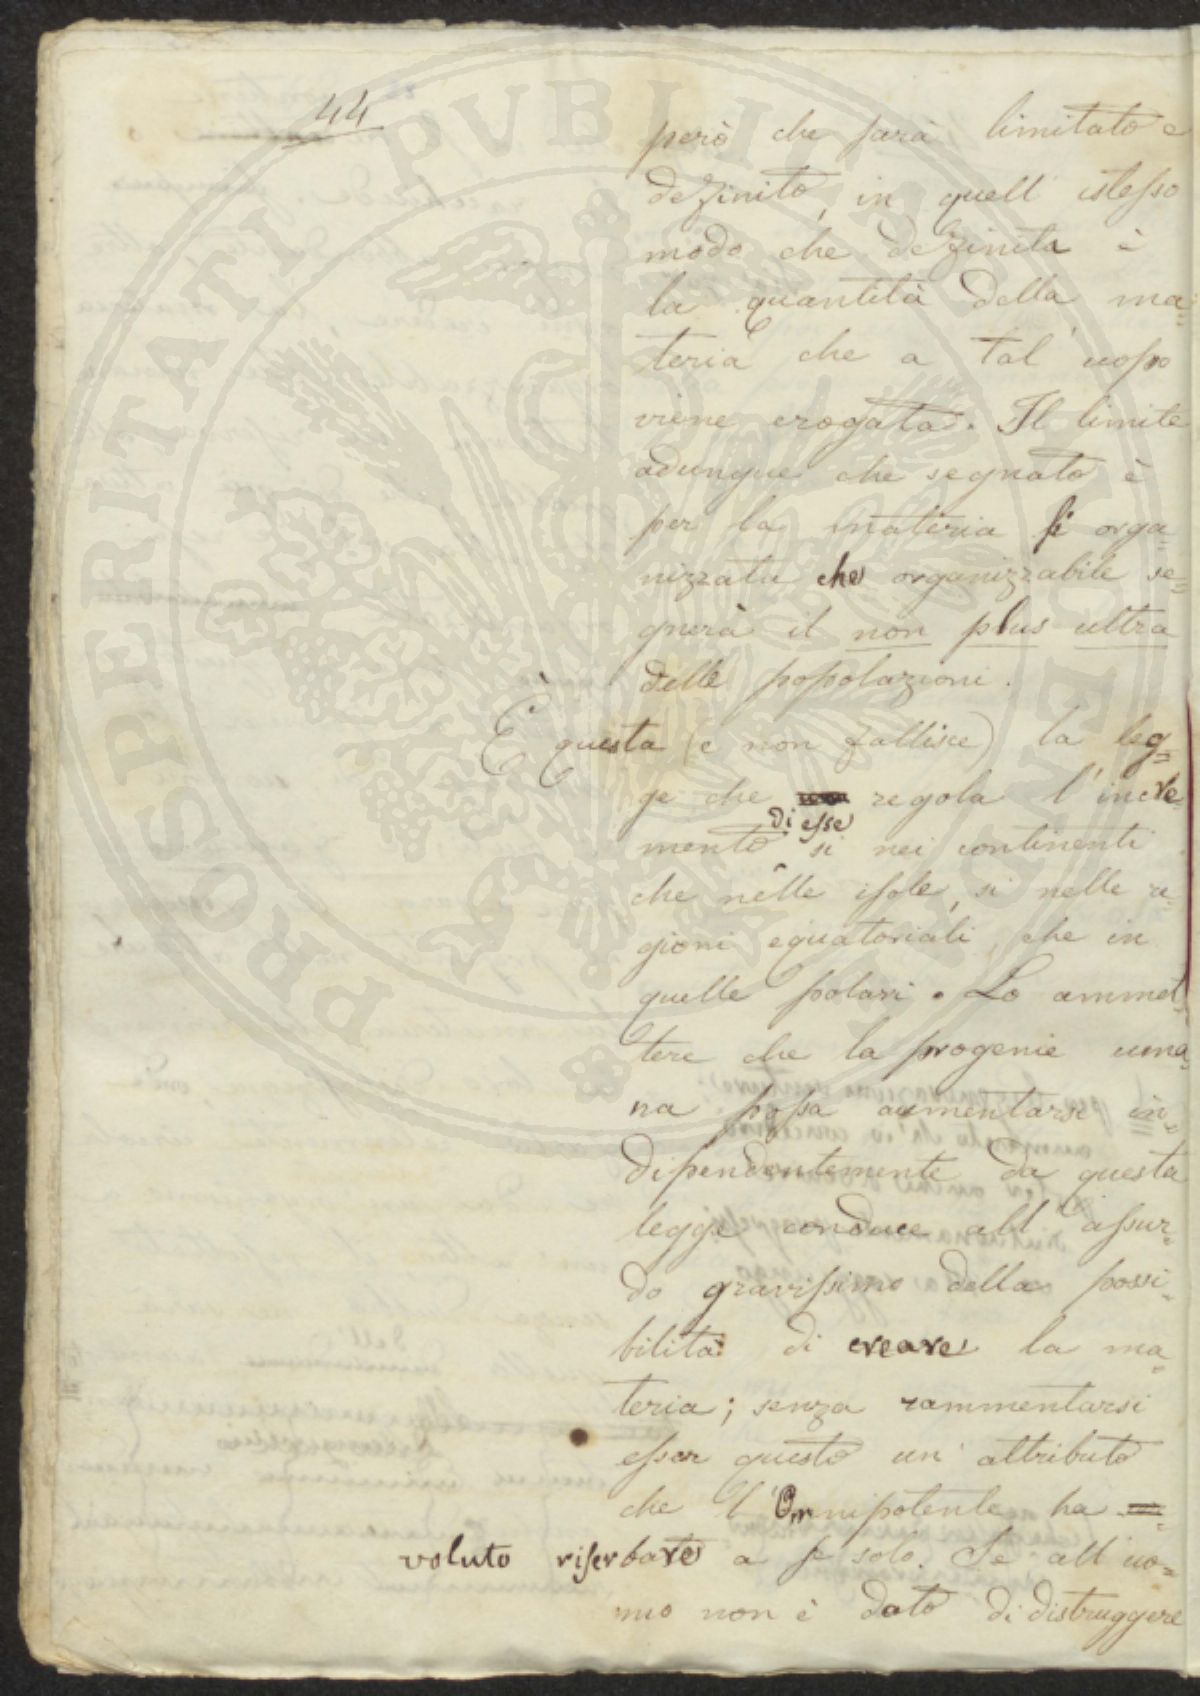 44
però che sarà limitato e
definito, in quell' istesso
modo che definita è
la quantità della ma=
teria che a tal' uopo
viene erogata. Il limite
adunque che segnato è
per la materia sì orga=
nizzata che organizzabile se=
gnerà il non plus ultra
delle popolazioni.
È questa (e non fallisce) la leg=
ge che regola l'incre=
mento di esse sì nei continenti
che nelle isole, si nelle re=
gioni equatoriali, che in
quelle polari. Lo ammet=
tere che la progenie uma=
na possa aumentarsi in=
dipendentemente da questa
legge conduce all' assur=
do gravissimo della possi=
bilità di creare la ma=
teria; senza rammentarsi
esser questo un' attributo
che l'Omnipotente ha
voluto riserbare a se solo. Se all' uo=
mo non è dato di distruggere
PROSPERITATI PUBLICAE